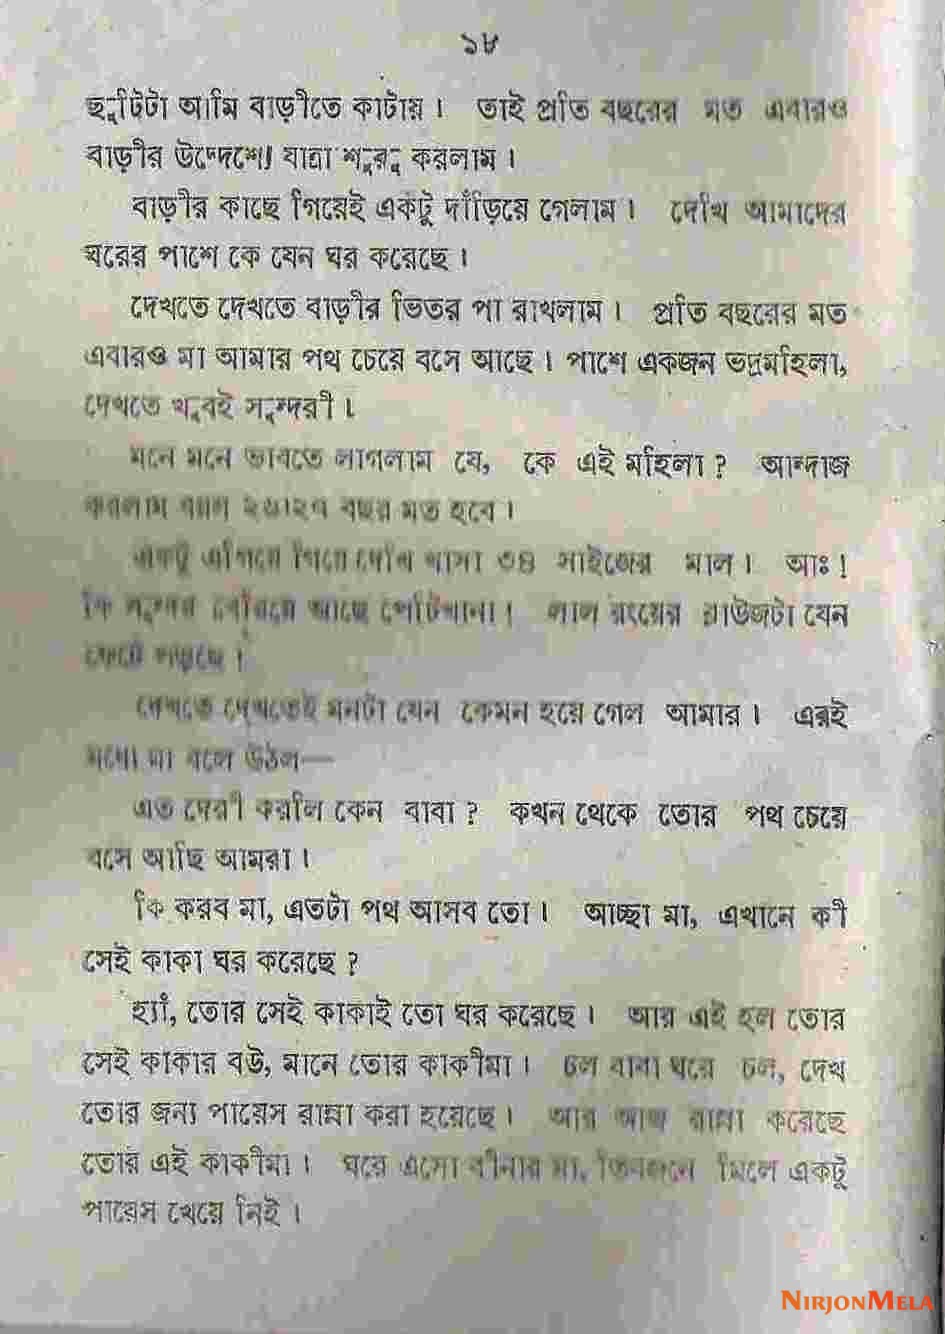 ১৮
ছুটিটা আমি বাড়ীতে কাটায়। তাই প্রতি বছরের মত এবারও
বাড়ীর উদ্দেশ্যে যাত্রা শুরু করলাম।
বাড়ীর কাছে গিয়েই একটু দাঁড়িয়ে গেলাম। দেখি আমাদের
ঘরের পাশে কে যেন ঘর করেছে।
দেখতে দেখতে বাড়ীর ভিতর পা রাখলাম। প্রতি বছরের মত
এবারও মা আমার পথ চেয়ে বসে আছে। পাশে একজন ভদ্রমহিলা,
দেখতে খুবই সুন্দরী।
মনে মনে ভাবতে লাগলাম যে, কে এই মহিলা? আন্দাজ
করলাম বয়স ২৬।২৭ বছর মত হবে।
একটু এগিয়ে গিয়ে দেখি খাসা ৩৪ সাইজের মাল। আঃ!
কি সুন্দর বেরিয়ে আছে পেটিখানা! লাল রংয়ের ব্লাউজটা যেন
ফেটে পড়ছে!
দেখতে দেখতেই মনটা যেন কেমন হয়ে গেল আমার। এরই
মধ্যে মা বলে উঠল—
এত দেরী করলি কেন বাবা? কখন থেকে তোর পথ চেয়ে
বসে আছি আমরা।
কি করব মা, এতটা পথ আসব তো। আচ্ছা মা, এখানে কী
সেই কাকা ঘর করেছে?
হ্যাঁ, তোর সেই কাকাই তো ঘর করেছে। আর এই হল তোর
সেই কাকার বউ, মানে তোর কাকীমা। চল বাবা ঘরে চল, দেখ
তোর জন্য পায়েস রান্না করা হয়েছে। আর আজ রান্না করেছে
তোর এই কাকীমা। ঘরে এসো বীনার মা, তিনজনে মিলে একটু
পায়েস খেয়ে নিই।
NIRJONMELA